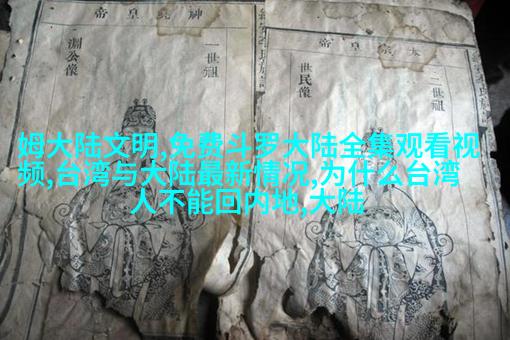 太宗皇帝
二世祖
世民像
神堯皇帝
一世祖
淵公像
姆大陆文明,免费斗罗大陆全集观看视
频,台湾与大陆最新情况,为什么台湾
人不能回内地,大陆